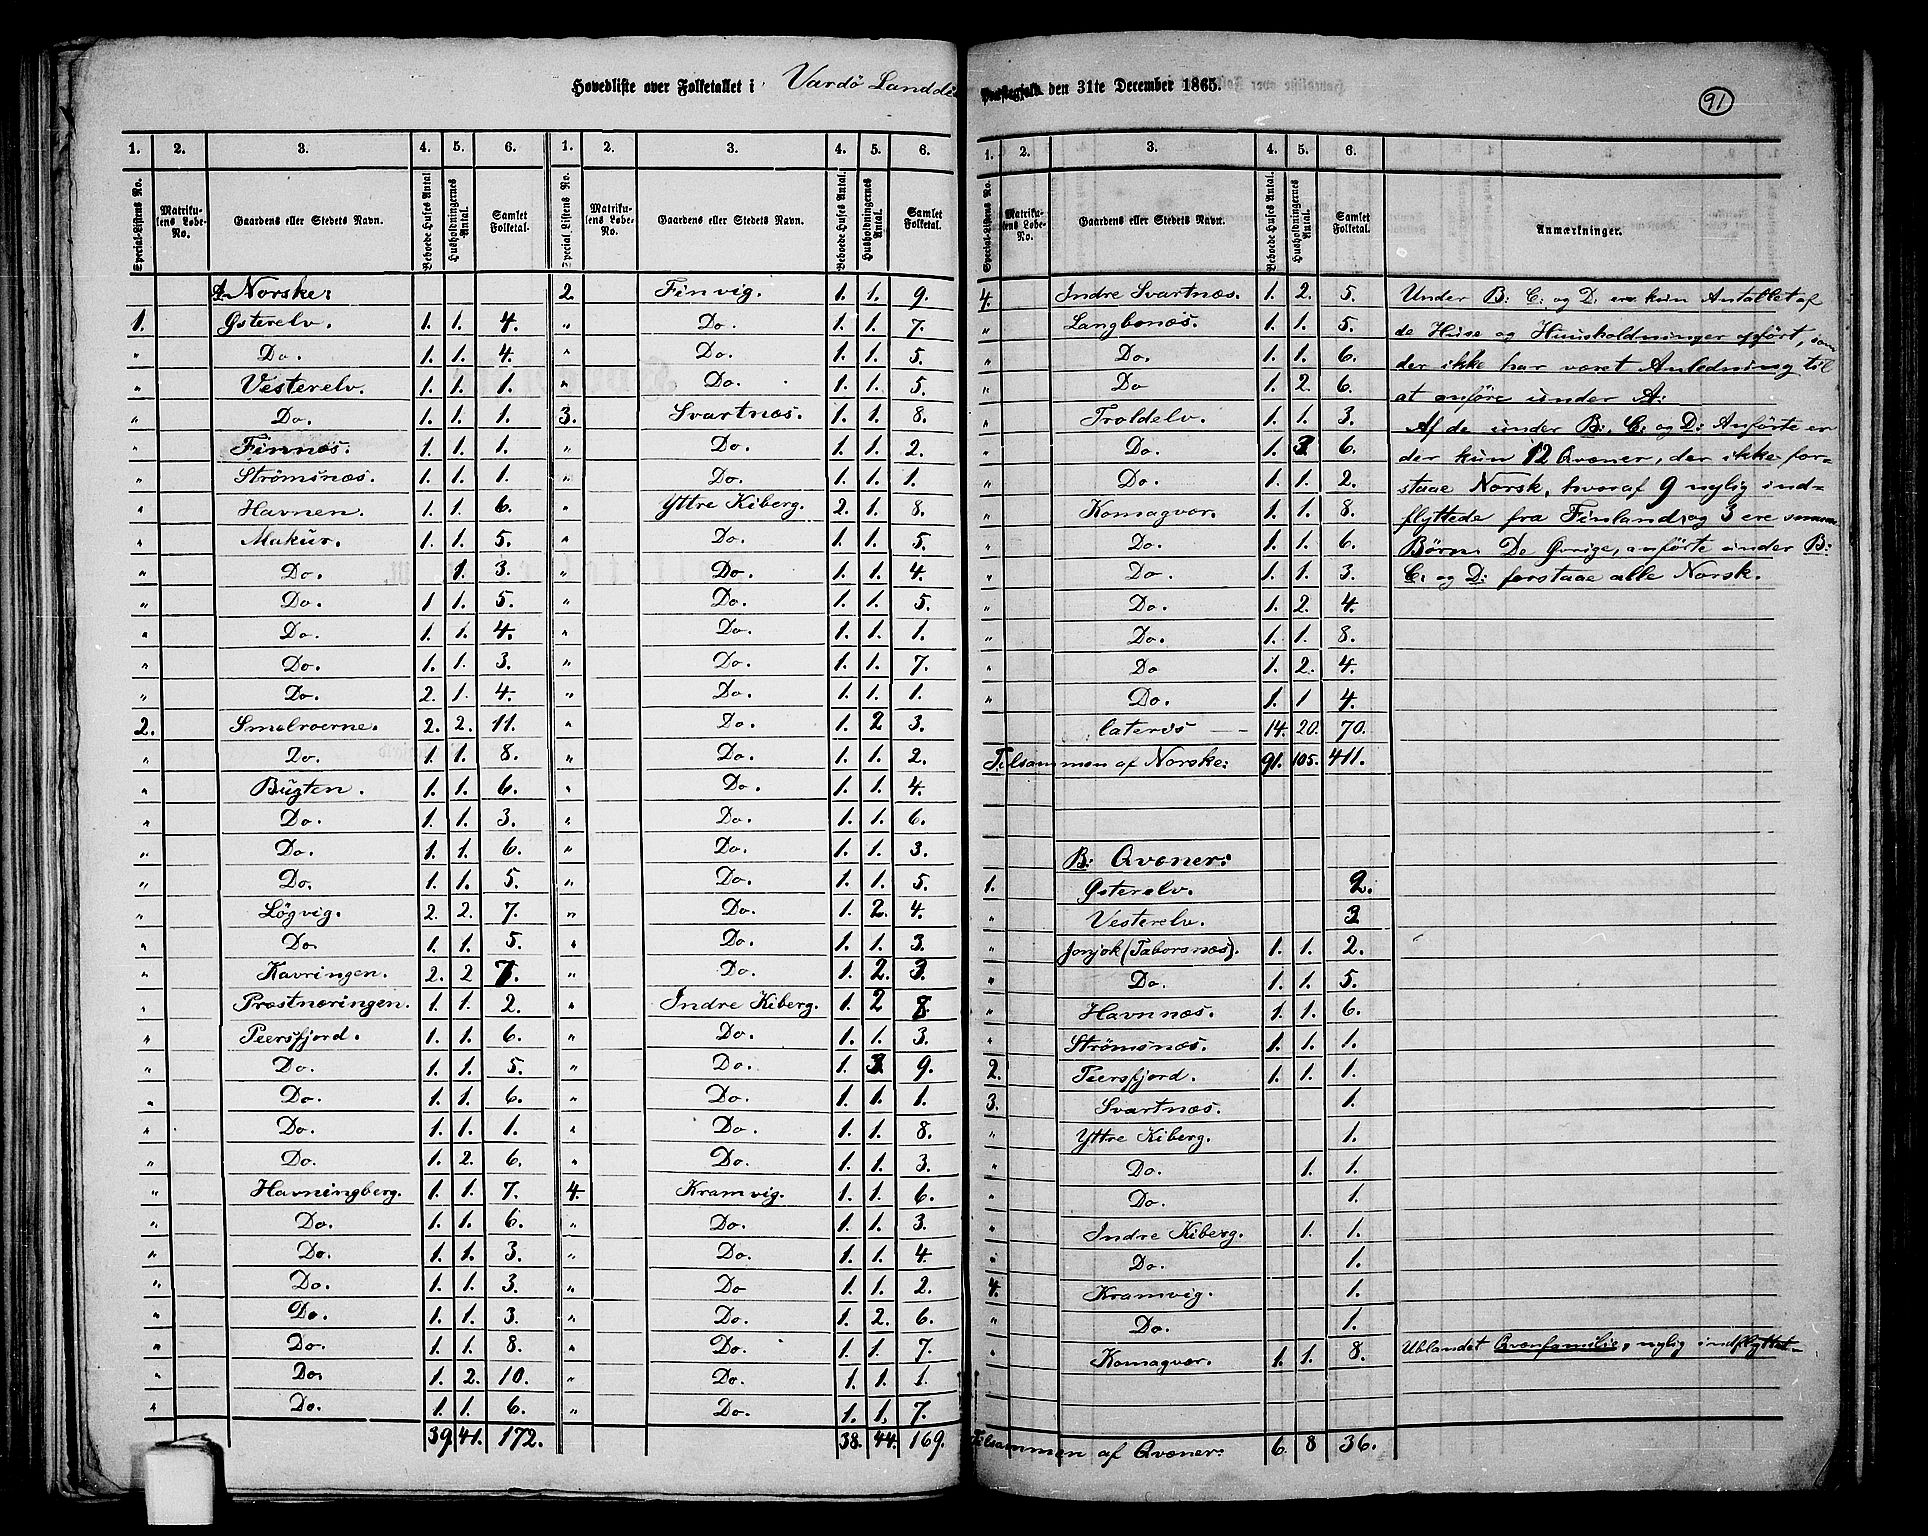 Hovedliste over Folketallet i Vardö Landd
Præstegjeld den 31te December 1865.
91
1. 2. 3. 4. 5. 6. 1. 2. 3. 4. 5. 6.
Special-Listens No. Matrikulens Løbe-No. Gaardens eller Stedets Navn. Beboede Huses Antal Husholdningernes Antal. Samlet Folketal. Special Listens No. Matrikulens Løbe-No. Gaardens eller Stedets Navn. Beboede Huses Antal. Husholdningernes Antal. Samlet Folketal.
A. Norske: 2. Finvig. 1. 1. 9.
1. Østerelv. 1. 1. 4. " Do. 1. 1. 7.
" Do. 1. 1. 4. " Do. 1. 1. 5.
" Vesterelv. 1. 1. 1. " Do. 1. 1. 5.
" Do. 1. 1. 1. 3. Svartnæs. 1. 1. 8.
" Finnæs. 1. 1. 1. " Do. 1. 1. 2.
" Strömsnæs. 1. 1. 1. " Do. 1. 1. 1.
" Havnen. 1. 1. 6. " Yttre Kiberg. 2. 1. 8.
" Makur. 1. 1. 5. " Do. 1. 1. 5.
" Do. 1. 3. " Do. 1. 1. 4.
" Do. 1 1. 5. " Do. 1. 1. 5.
" Do. 1. 1. 4. " Do. 1. 1. 1.
" Do. 1. 1. 3. " Do. 1. 1. 7.
" Do. 2. 1. 4. " Do. 1. 1. 1.
2. Smelroerne. 2. 2. 11. " Do. 1. 2 3.
" Do. 1. 1. 8. " Do. 1. 1. 2.
" Bugten. 1. 1. 6. " Do. 1. 1. 4.
" Do. 1. 1. 3. " Do. 1. 1. 6.
" Do. 1. 1. 6. " Do. 1. 1. 3.
" Do. 1. 1. 5. " Do. 1. 1. 5.
" Lögvig. 2. 2. 7. " Do. 1. 2. 4.
" Do. 1. 1. 5. " Do. 1. 1. 3.
" Kavringen. 2. 2 7. " Do. 1. 2. 3.
" Præstnæringen. 1. 1. 2. " Indre Kiberg. 1. 2 8.
" Peersfjord. 1. 1. 6. " Do. 1. 1. 3.
" Do. 1. 1. 5. " Do. 1. 3. 9.
" Do. 1. 1. 6. " Do. 1. 1. 1.
" Do. 1. 1. 1. " Do. 1. 1. 8.
" Do. 1. 2. 6. " Do. 1. 1. 3.
" Havningberg. 1. 1. 7. 4. Kramvig. 1. 1. 6.
" Do. 1. 1. 6. " Do. 1. 1. 3.
" Do. 1. 1. 3. " Do. 1. 1. 4.
" Do. 1. 1. 3. " Do 1. 1. 2.
" Do. 1. 1. 3. " Do. 1. 2. 6.
" Do. 1. 1. 8. " Do. 1. 1. 7.
" Do. 1. 2. 10. " Do. 1. 1. 1.
" Do. 1. 1. 6. " Do. 1. 1. 7.
39. 41. 172. 38. 44. 169.
1. 2. 3. 4. 5. 6.
Special-Listens No. Matrikulens Løbe-No. Gaardens eller Stedets Navn. Beboede Huses Antal. Husholdningernes Antal. Samlet Folketal. Anmærkninger.
4. Indre Svartnæs. 1. 2. 5. Under B: C: og D. ere kun Antallet af
" Langbonæs. 1. 1. 5. de Huse og Huusholdninger opført, som
" Do. 1. 1. 6. der ikke har været Anledning til
" Do 1. 2. 6. at anføre under A:
" Troldelv. 1. 1. 3. Af de under B: C: og D: Anførte er
" Do. 1. 3. 6. der kun 12 Qvæner, der ikke for-
" Do. 1. 1. 2. staae Norsk, hvoraf 9 nylig ind-
" Komagvær. 1. 1. 8. flyttede fra Finland, og 3 ere
" Do. 1. 1. 6. Børn. De Øvrige, anførte under B:
" Do. 1. 1. 3. C: og D: forstaae alle Norsk.
" Do. 1. 2. 4.
" Do. 1. 1. 8.
" Do 1. 2. 4.
" Do. 1. 1 4.
lateris 14. 20. 70.
Tilsammen af Norske: 91. 105. 411.
B: Qvæner:
1. Østerelv. 2.
" Vesterelv. 3
" Jonjok (Taborsnæs). 1. 1. 2.
" Do. 1. 1. 5.
" Havnnæs. 1. 1. 6.
" Strömsnæs. 1. 1. 1.
2. Peersfjord. 1. 1. 1.
3. Svartnæs. 1.
" Yttre Kiberg. 1.
" Do. 1. 1.
" Do. 1.
" Indre Kiberg. 1. 1.
" Do. 1.
4. Kramvig. 1.
" Do. 1.
" Komagvær. 1. 1. 8. Ublandet Qvænfamilie, nylig indflyttet
Tilsammen af Qvæner: 6. 8 36.